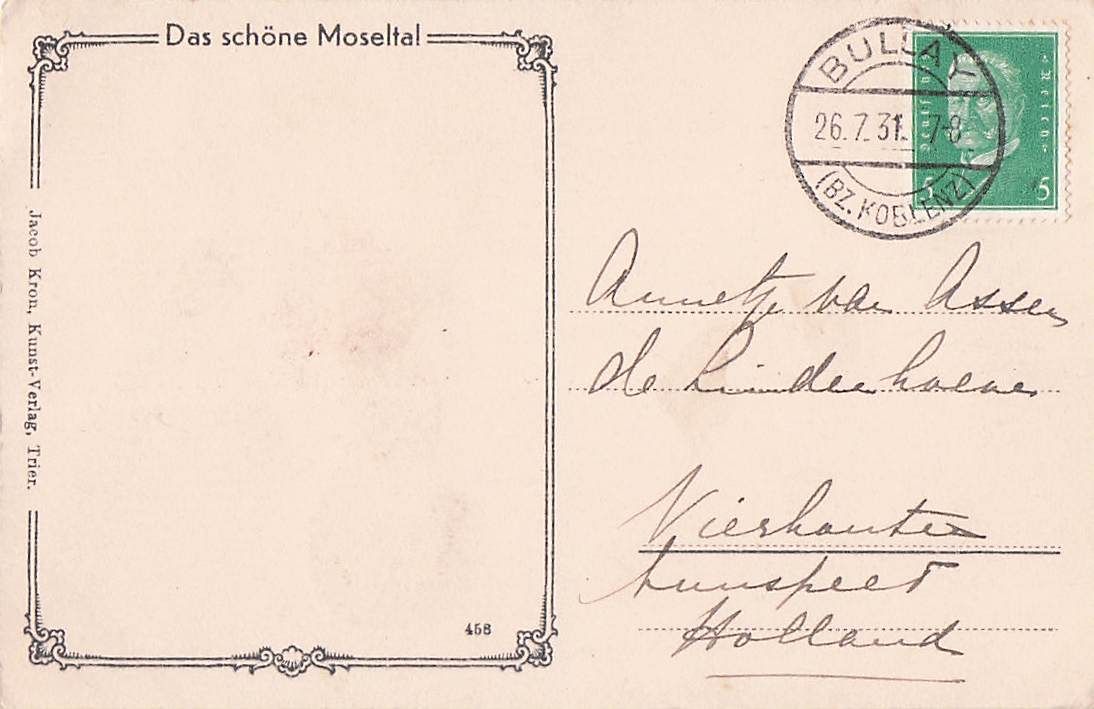 Das schöne Moseltal
BULLAY
26.7.31. 7-8
(BZ. KOBLENZ)
Deutsches Reich
5 5
Annetje van Assen
de Lindenhoeve
Vierhouten
Nunspeet
Holland
Jacob Kron, Kunst-Verlag, Trier.
458